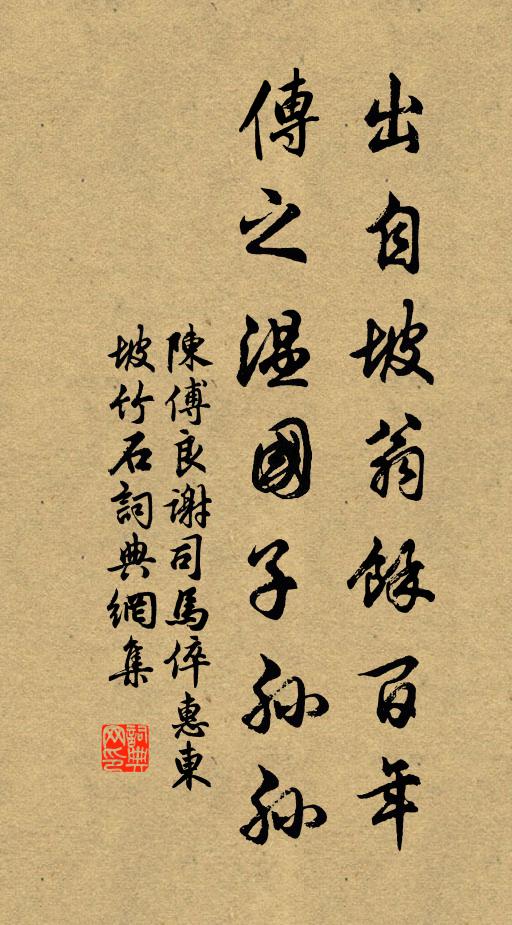 出自坡翁餘百年
傳之温國子孫孫
陳傅良謝司馬倅惠東
坡竹石詞典網集
詞典
网印